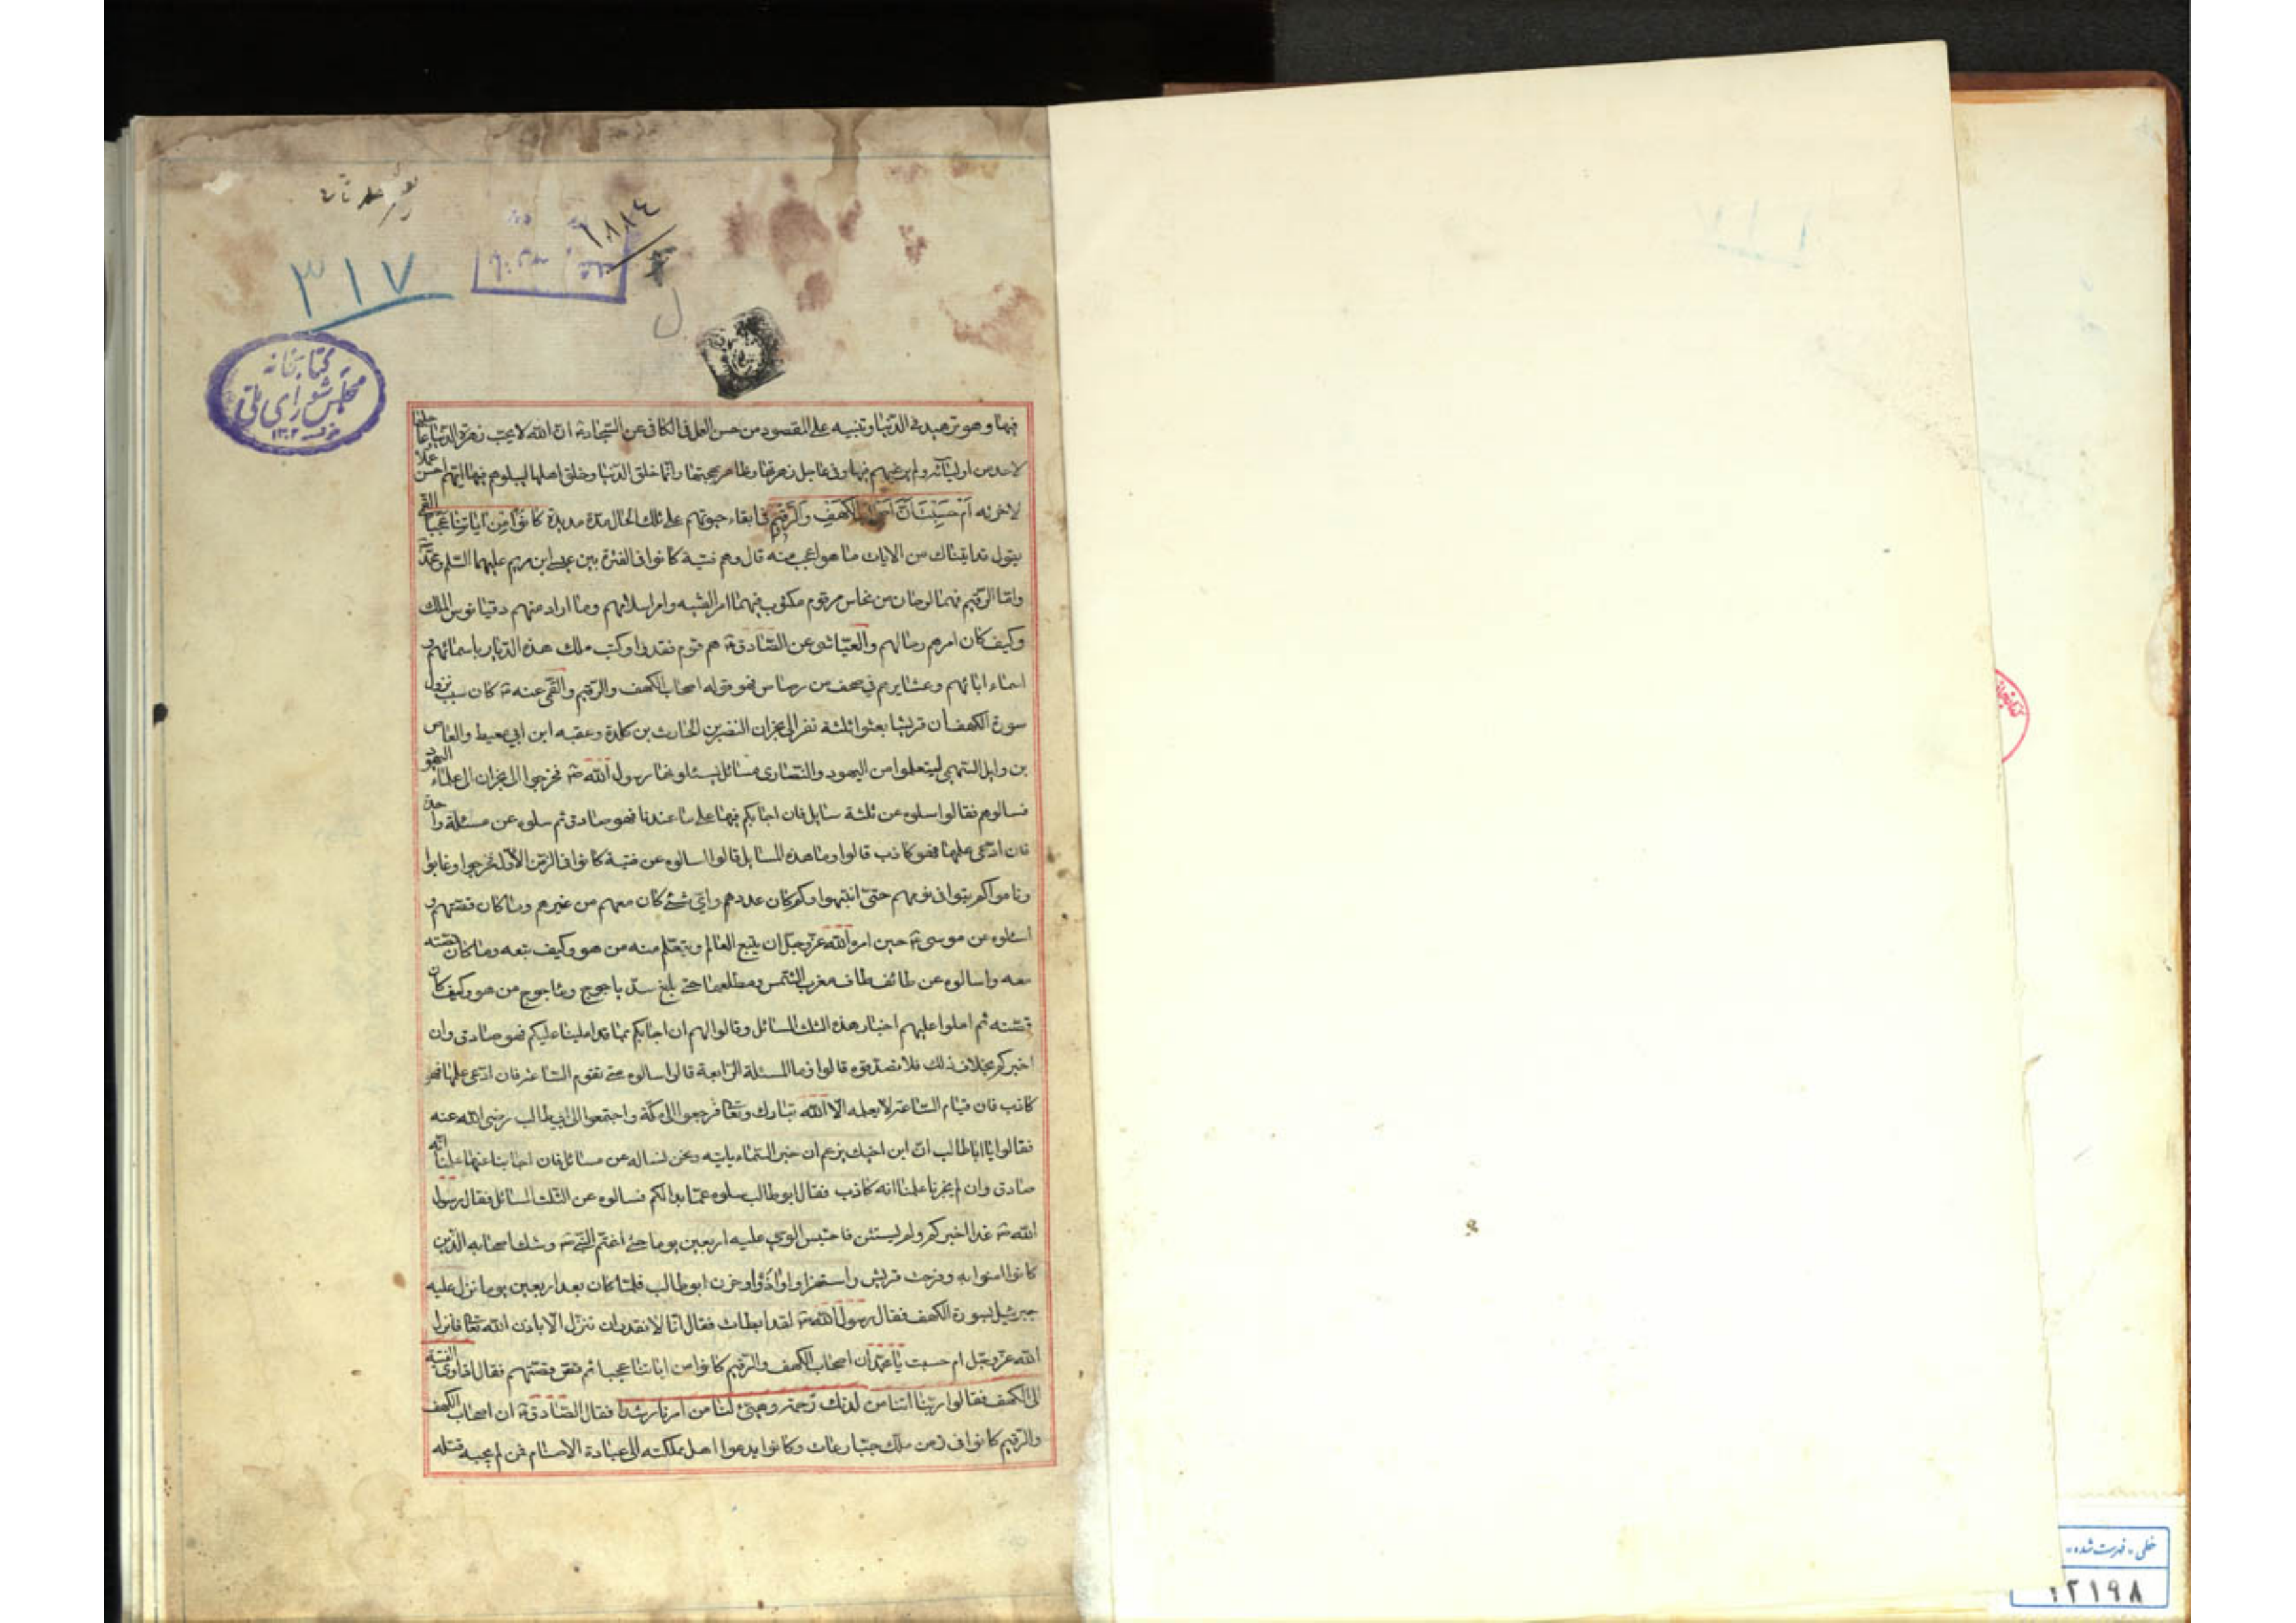 ٣١٧
١٨٨٤
كتابخانه
مجلس شورای ملی
١٣٠٢
فيها وهو تزهيد فى الدنيا وتنبيه على المقصود من حسن العمل فى الكافى عن السجاد ان الله لا يحب زهرة الدنيا وعاجلها
لاحد من اوليائه ولم يرغبهم فيها وفى عاجل زهرتها وظاهر بهجتها وانما خلق الدنيا وخلق اهلها ليبلوهم فيها ايهم احسن عملا
لاخرته اَمْ حَسِبْتَ اَنَّ اَصْحابَ الْكَهْفِ وَالرَّقيمِ فى ابقاء حيوتهم على تلك الحال مدة مديدة كانُوا مِنْ اياتِنا عَجَبًا القمى
يقول قد اتيناك من الايات ما هو اعجب منه قال وهم فتية كانوا فى الفترة بين عيسى ابن مريم عليهما السلم ومحمد
واما الرقيم فهما لوحان من نحاس مرقوم مكتوب فيهما امر الفتية وامر اسلامهم وما اراد منهم دقيانوس الملك
وكيف كان امرهم وحالهم والعياشى عن الصادق ع هم قوم فقدوا وكتب ملك هذه الديار باسمائهم و
اسماء ابائهم وعشايرهم فى صحف من رصاص فهو قوله اصحاب الكهف والرقيم والقمى عنه ع كان سبب نزول
سورة الكهف ان قريشا بعثوا ثلثة نفر الى نجران النضر بن الحارث بن كلدة وعقبه ابن ابي معيط والعاص
بن وايل السهمى ليتعلموا من اليهود والنصارى مسائل يسئلونها رسول الله ص فخرجوا الى نجران الى علماء اليهود
فسالوهم فقالوا سلوه عن ثلثة مسايل فان اجابكم فيها على ما عندنا فهو صادق ثم سلوه عن مسئلة واحدة
فان ادعى علمها فهو كاذب قالوا وما هذه المسايل قالوا اسالوه عن فتية كانوا فى الزمن الاول فخرجوا وغابوا
وناموا كم بقوا فى نومهم حتى انتبهوا وكم كان عددهم واى شىء كان معهم من غيرهم وما كان قصتهم و
اسئلوه عن موسى ع حين امره الله عز وجل ان يتبع العالم ويتعلم منه من هو وكيف تبعه وما كان قصته
معه واسالوه عن طائف طاف مغرب الشمس ومطلعها حتى بلغ سد ياجوج وماجوج من هو وكيف كان
قصته ثم املوا عليهم اخبار هذه الثلث المسائل وقالوا لهم ان اجابكم بما قد املينا عليكم فهو صادق وان
اخبركم بخلاف ذلك فلا تصدقوه قالوا فما المسئلة الرابعة قالوا اسالوه متى تقوم الساعة فان ادعى علمها فهو
كاذب فان قيام الساعة لا يعلمه الا الله تبارك وتعالى فرجعوا الى مكة واجتمعوا الى ابي طالب رضى الله عنه
فقالوا يا ابا طالب ان ابن اخيك يزعم ان خبر السماء ياتيه ونحن نساله عن مسائل فان اجابنا عنها علمنا انه
صادق وان لم يخبرنا علمنا انه كاذب فقال ابو طالب سلوه عما بدا لكم فسالوه عن الثلث المسائل فقال رسول
الله ص غدا اخبركم ولم يستثن فاحتبس الوحي عليه اربعين يوما حتى اغتم النبى ص وشك اصحابه الذين
كانوا امنوا به وفرحت قريش واستهزاوا واذوا وحزن ابو طالب فلما كان بعد اربعين يوما نزل عليه
جبرئيل بسورة الكهف فقال رسول الله ص لقد ابطات فقال انا لا نقدر ان ننزل الا باذن الله تعالى فانزل
الله عز وجل ام حسبت يا محمد ان اصحاب الكهف والرقيم كانوا من اياتنا عجبا ثم قص قصتهم فقال اذ اوى الفتية
الى الكهف فقالوا ربنا اتنا من لدنك رحمة وهيئ لنا من امرنا رشدا فقال الصادق ع ان اصحاب الكهف
والرقيم كانوا فى زمن ملك جبار عات وكانوا يدعوا اهل مملكته الى عبادة الاصنام فمن لم يجبه قتله
خطى - فهرست شده
١٢١٩٨